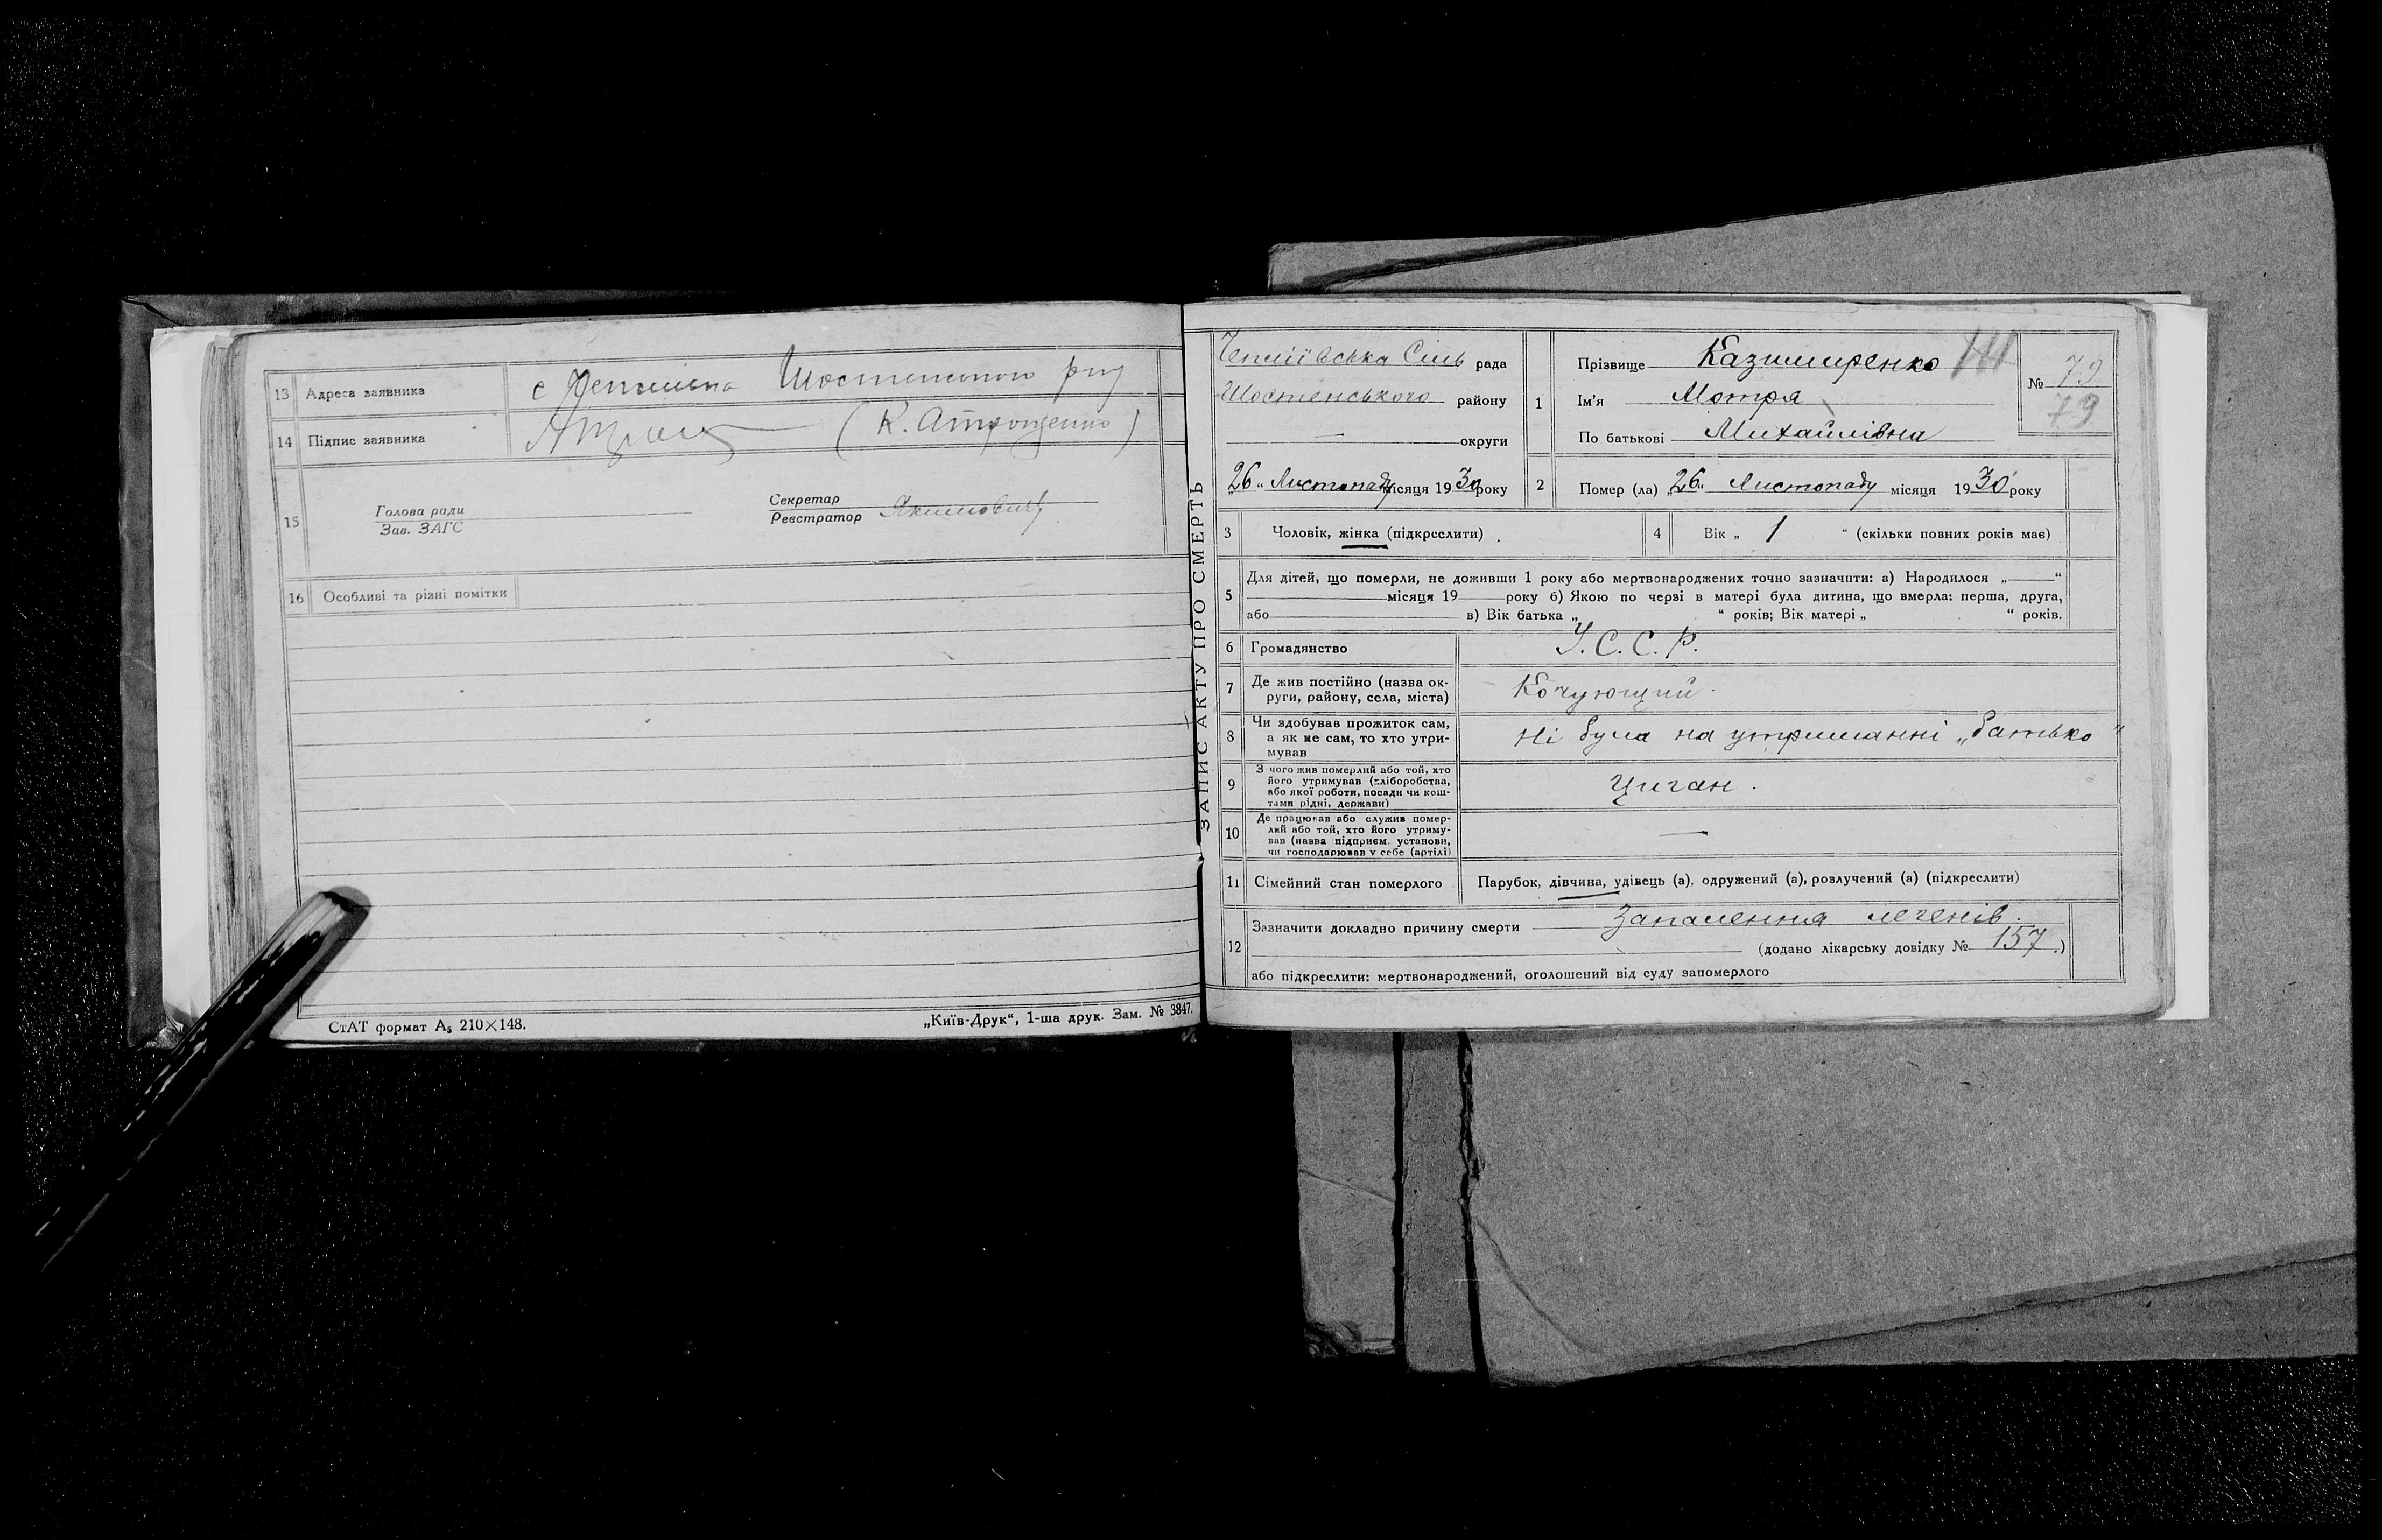 13 Адреса заявника с Чепліївка Шостенського р-ну
14 Підпис заявника (К. Атрощенко)
15 Голова ради
Зав. ЗАГС
Секретар
Реєстратор Якимович
16 Особливі та різні помітки
СтАТ формат А5 210×148.
„Київ-Друк“, 1-ша друк. Зам. № 3847.
ЗАПИС АКТУ ПРО СМЕРТЬ
Чепліївська Сіль рада
Шостенського району
— округи
„26„ Листопаду місяця 1930 року
1 Прізвище Казимиренко
Ім'я Мотря
По батькові Михайлівна
№ 79
79
2 Помер (ла) „26„ Листопаду місяця 1930 року
3 Чоловік, жінка (підкреслити)
4 Вік „ 1 “ (скільки повних років має)
5 Для дітей, що померли, не доживши 1 року або мертвонароджених точно зазначити: а) Народилося „—“
місяця 19 року б) Якою по черзі в матері була дитина, що вмерла: перша, друга,
або в) Вік батька „ “ років; Вік матері „ “ років.
6 Громадянство У.С.С.Р.
7 Де жив постійно (назва ок-
руги, району, села, міста) Кочующий.
8 Чи здобував прожиток сам,
а як не сам, то хто утри-
мував Ні була на утриманні „батько“
9 З чого жив померлий або той, хто
його утримував (хліборобства,
або якої роботи, посади чи кош-
тами рідні, держави) Циган.
10 Де працював або служив помер-
лий або той, хто його утриму-
вав (назва підприєм. установи,
чи господарював у себе (артілі) —
11 Сімейний стан померлого Парубок, дівчина, удівець (а), одружений (а), розлучений (а) (підкреслити)
12 Зазначити докладно причину смерти Запалення легенів.
(додано лікарську довідку № 157.)
або підкреслити: мертвонароджений, оголошений від суду запомерлого